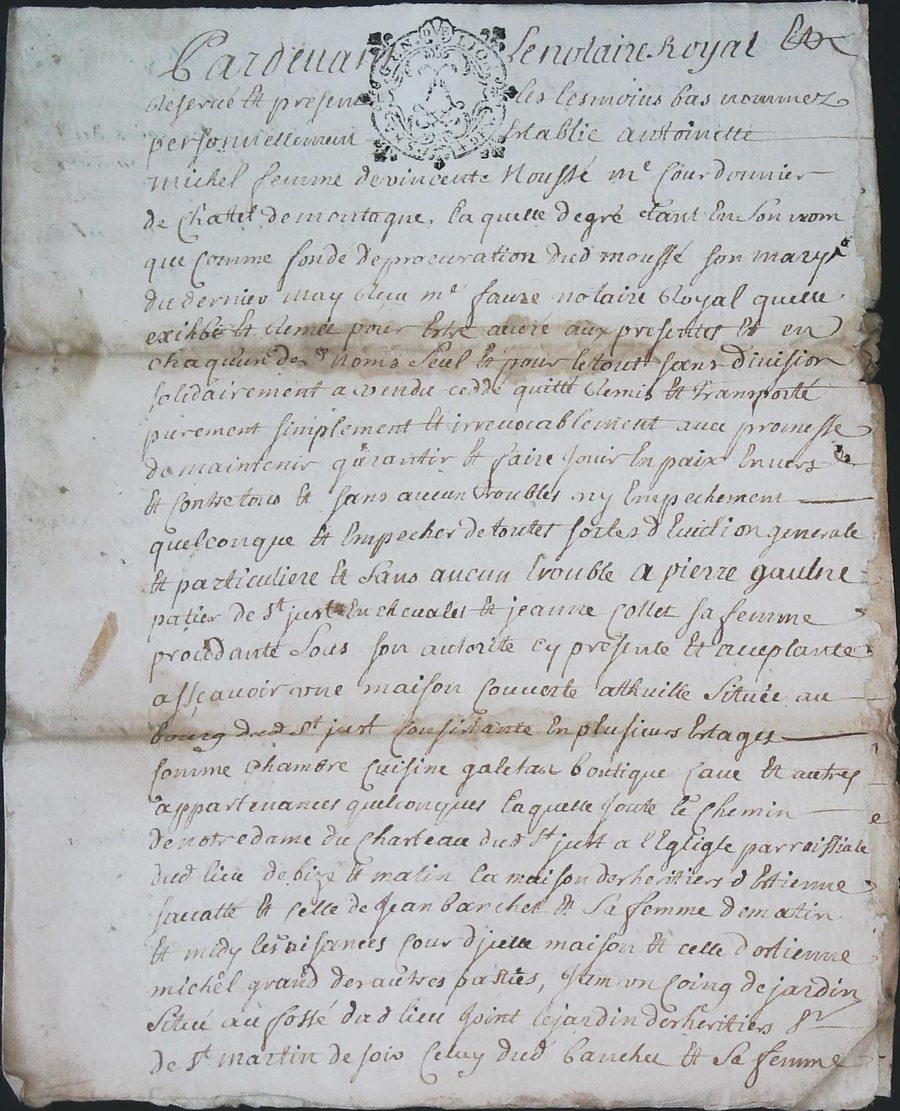 Pardevant le notaire Royal
Reservé Et presens les tesmoins bas nommez
personnellement Establie antoinette
michel femme de vincente Moussé me Courdonnier
de Chatel de montagne, la quelle de gré tant En Son nom
que Comme fondé de procuration dud moussé son mary
du dernier may Reçu me faure notaire Royal quelle
exibbé Et Remis pour Estre aux presentes Et en
chaq'un de noms Seul Et pour le tout sans division
solidairement a vendu ceddé quitté Remis Et transporté
purement simplement Et irrevocablement avec promesse
de maintenir garantir Et faire Jouir En paix Envers
Et Contre tous Et sans aucun troubles ny Empechement
quelconque Et Empecher de toutes sortes d'Eviction generale
Et particuliere Et Sans aucun trouble a pierre gaulne
patier de St just En chevalet Et jeanne Collet sa femme
procedante Sous son autorité cy presente Et acceptante
assçavoir une maison Couverte a thuille Située au
bourg dud St just Consistante En plusieurs Estages
Comme Chambre Cuisine galetas boutique Cave Et autres
appartenances quelconques laquelle Joute le Chemin
de notre dame du Charteau dud St just a l'Egligle parroissiale
dud lieu de bize Et matin la maison des heritiers d'Estienne
Et Celle de Jean banchet Et Sa femme de matin
Et midy les aisances Cour d'jcelle maison Et celle d'estienne
michel grand des autres parties, Jtem un Coing de jardin
Situé au fossé dud lieu Joint le jardin des heritiers Sr
de St martin de soir Celuy dud banchet Et Sa femme